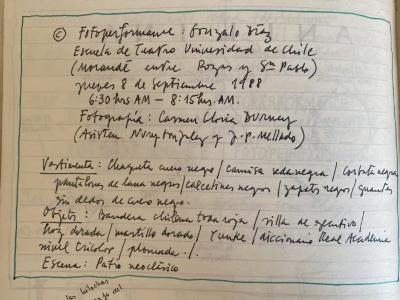 © Fotoperformance : Gonzalo Díaz
Escuela de Teatro Universidad de Chile
(Morandé entre Rozas y Sn Pablo)
jueves 8 de Septiembre 1988
6:30 hrs AM — 8:15 hrs. AM.
Fotografía : Carmen Gloria
(Asisten Nury González y J-P. Mellado)
Vestimenta : Chaqueta cuero negro / camisa seda negra / corbata negra
pantalones de lana negros / calcetines negros / zapatos negros / guantes
sin dedos de cuero negro.
Objetos : Bandera chilena toda roja / silla de ejecutivo /
hoz dorada / martillo dorado / Yunke / diccionario Real Academia
nivel tricolor / plomada ./.
Escena : Patio neoclásico